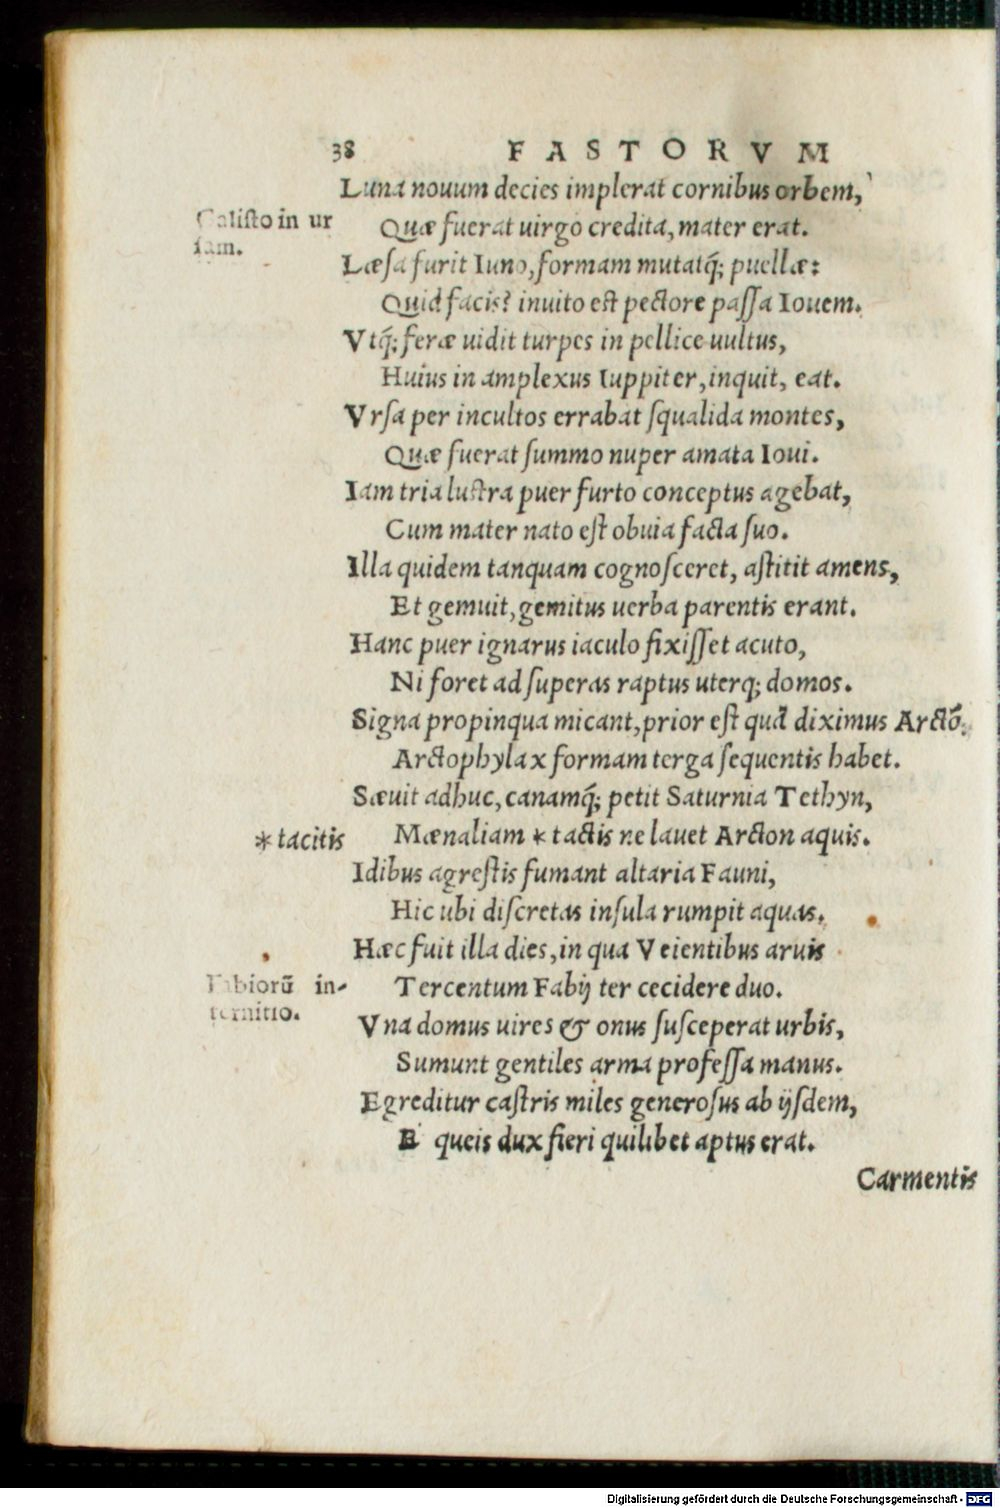 38 FASTORVM
Luna nouum decies implerat cornibus orbem,
Calisto in ur
sam.
Quæ fuerat uirgo credita, mater erat.
Læſa furit Iuno, formam mutatq́; puellæ:
Quid facis? inuito eſt pectore paſſa Iouem.
Vtq́; feræ uidit turpes in pellice uultus,
Huius in amplexus Iuppiter, inquit, eat.
Vrſa per incultos errabat ſqualida montes,
Quæ fuerat ſummo nuper amata Ioui.
Iam tria luſtra puer furto conceptus agebat,
Cum mater nato eſt obuia facta ſuo.
Illa quidem tanquam cognoſceret, aſtitit amens,
Et gemuit, gemitus uerba parentis erant.
Hanc puer ignarus iaculo fixiſſet acuto,
Ni foret ad ſuperas raptus uterq; domos.
Signa propinqua micant, prior eſt quā diximus Arctō,
Arctophylax formam terga ſequentis habet.
Sæuit adhuc, canamq́; petit Saturnia Tethyn,
*tacitis
Mænaliam * tactis ne lauet Arcton aquis.
Idibus agreſtis fumant altaria Fauni,
Hic ubi diſcretas inſula rumpit aquas.
Hæc fuit illa dies, in qua Veientibus aruis
Fabiorū in-
ternitio.
Tercentum Fabij ter cecidere duo.
Vna domus uires & onus ſuſceperat urbis,
Sumunt gentiles arma profeſſa manus.
Egreditur caſtris miles generoſus ab ijſdem,
E queis dux fieri quilibet aptus erat.
Carmentis
Digitalisierung gefördert durch die Deutsche Forschungsgemeinschaft - DFG